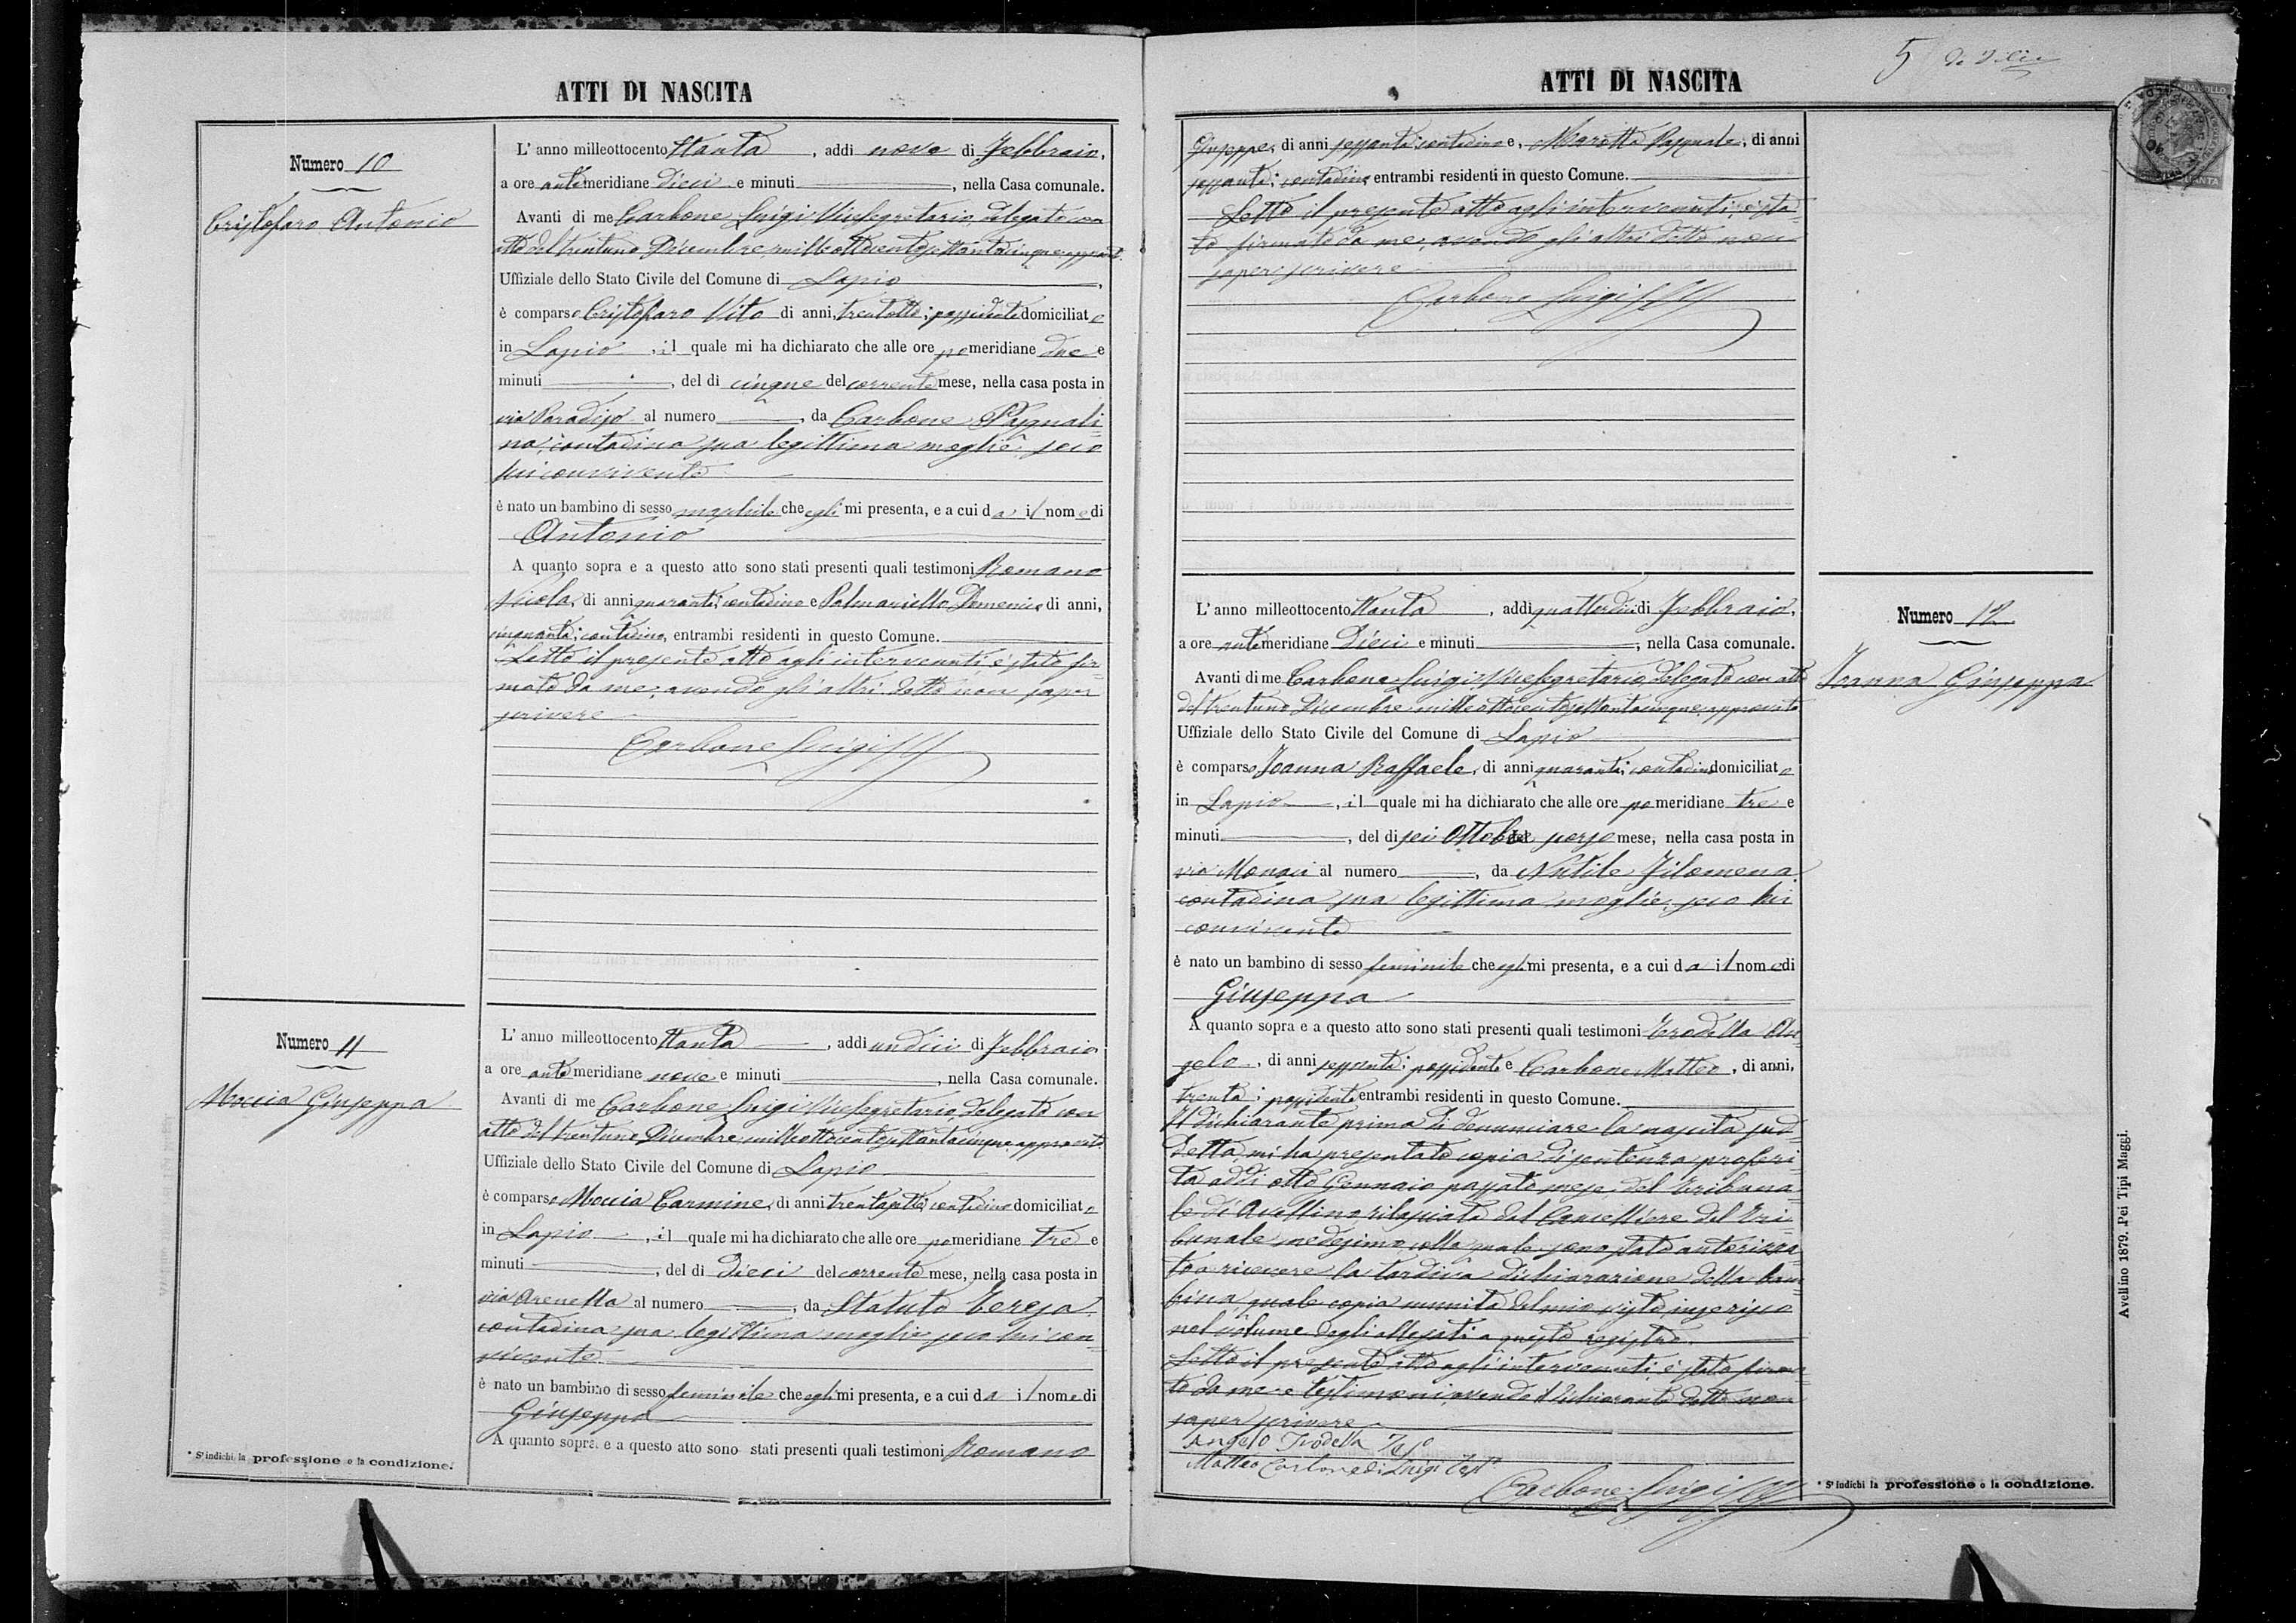 ATTI DI NASCITA
Numero 10
Cristofaro Antonio
L' anno milleottocento ttanta , addì nove di Febbraio,
a ore antimeridiane dieci e minuti , nella Casa comunale.
Avanti di me Carbone Luigi Vicesegretario delegato con
atto del trentuno Dicembre milleottocentosettantacinque approvato
Uffiziale dello Stato Civile del Comune di Lapio ,
è comparso Cristofaro Vito di anni, trentotto; possidente domiciliato
in Lapio , il quale mi ha dichiarato che alle ore pomeridiane due e
minuti , del dì cinque del corrente mese, nella casa posta in
via Paradiso al numero , da Carbone Pasquali=
na, contadina sua legittima moglie, seco
lui convivente
è nato un bambino di sesso maschile che egli mi presenta, e a cui da il nome di
Antonio
A quanto sopra e a questo atto sono stati presenti quali testimoni Romano
Nicola, di anni quaranta; contadino e Palmariello Domenico di anni,
cinquanta; contadino, entrambi residenti in questo Comune.
Letto il presente atto agli intervenuti, è stato fir=
mato da me; avendo gli altri detto non saper
scrivere
Carbone Luigi
Numero 11
Moccia Giuseppa
L' anno milleottocento ttanta , addì undici di Febbraio
a ore antimeridiane nove e minuti , nella Casa comunale.
Avanti di me Carbone Luigi Vicesegretario delegato con
atto del trentuno Dicembre milleottocentosettantacinque approvato
Uffiziale dello Stato Civile del Comune di Lapio
è comparso Moccia Carmine, di anni trentasette; contadino domiciliato
in Lapio , il quale mi ha dichiarato che alle ore pomeridiane tre e
minuti , del dì dieci del corrente mese, nella casa posta in
via Arenella al numero , da Statuto Teresa
contadina sua legittima moglie, seco lui con=
vivente
è nato un bambino di sesso feminile che egli mi presenta, e a cui da il nome di
Giuseppa
A quanto sopra e a questo atto sono stati presenti quali testimoni Romano
* S' indichi la professione o la condizione.
ATTI DI NASCITA
5
Giuseppe, di anni sessanta; contadino e, Marotta Pasquale, di anni
sessanta; contadino, entrambi residenti in questo Comune.
Letto il presente atto agli intervenuti, è sta=
to firmato da me; avendo gli altri detto non
saper scrivere
Carbone Luigi
Numero 12
Ioanna Giuseppa
L' anno milleottocento ttanta , addì quattordici di Febbraio,
a ore antimeridiane dieci e minuti , nella Casa comunale.
Avanti di me Carbone Luigi Vicesegretario delegato con atto
del trentuno Dicembre milleottocentosettantacinque approvato
Uffiziale dello Stato Civile del Comune di Lapio
è comparso Ioanna Raffaele, di anni quaranta; contadino domiciliato
in Lapio , il quale mi ha dichiarato che alle ore pomeridiane tre e
minuti , del dì sei Ottobre scorso mese, nella casa posta in
via Monaci al numero , da Nutile Filomena
contadina sua legittima moglie, seco lui
convivente
è nato un bambino di sesso feminile che egli mi presenta, e a cui da il nome di
Giuseppa
A quanto sopra e a questo atto sono stati presenti quali testimoni Trodella An=
gelo, di anni sessanta; possidente e Carbone Matteo, di anni,
trenta; possidente entrambi residenti in questo Comune.
Il dichiarante prima di denunciare la nascita sud=
detta, mi ha presentato copia di sentenza proferi=
ta addì otto Gennaio passato mese del Tribuna=
le di Avellino rilasciata dal Cancelliere del Tri=
bunale medesimo, colla quale sono stato autorizza=
to a ricevere la tardiva dichiarazione della bam=
bina, quale copia munita del mio visto, inserisco
nel volume degli allegati a questo registro.
Letto il presente atto agli intervenuti, è stato firma=
to da me e testimoni, avendo il dichiarante detto non
saper scrivere
Angelo Trodella Tes°
Matteo Carbone di Luigi Test°
Carbone Luigi
* S' indichi la professione o la condizione.
Avellino 1879. Pei Tipi Maggi.